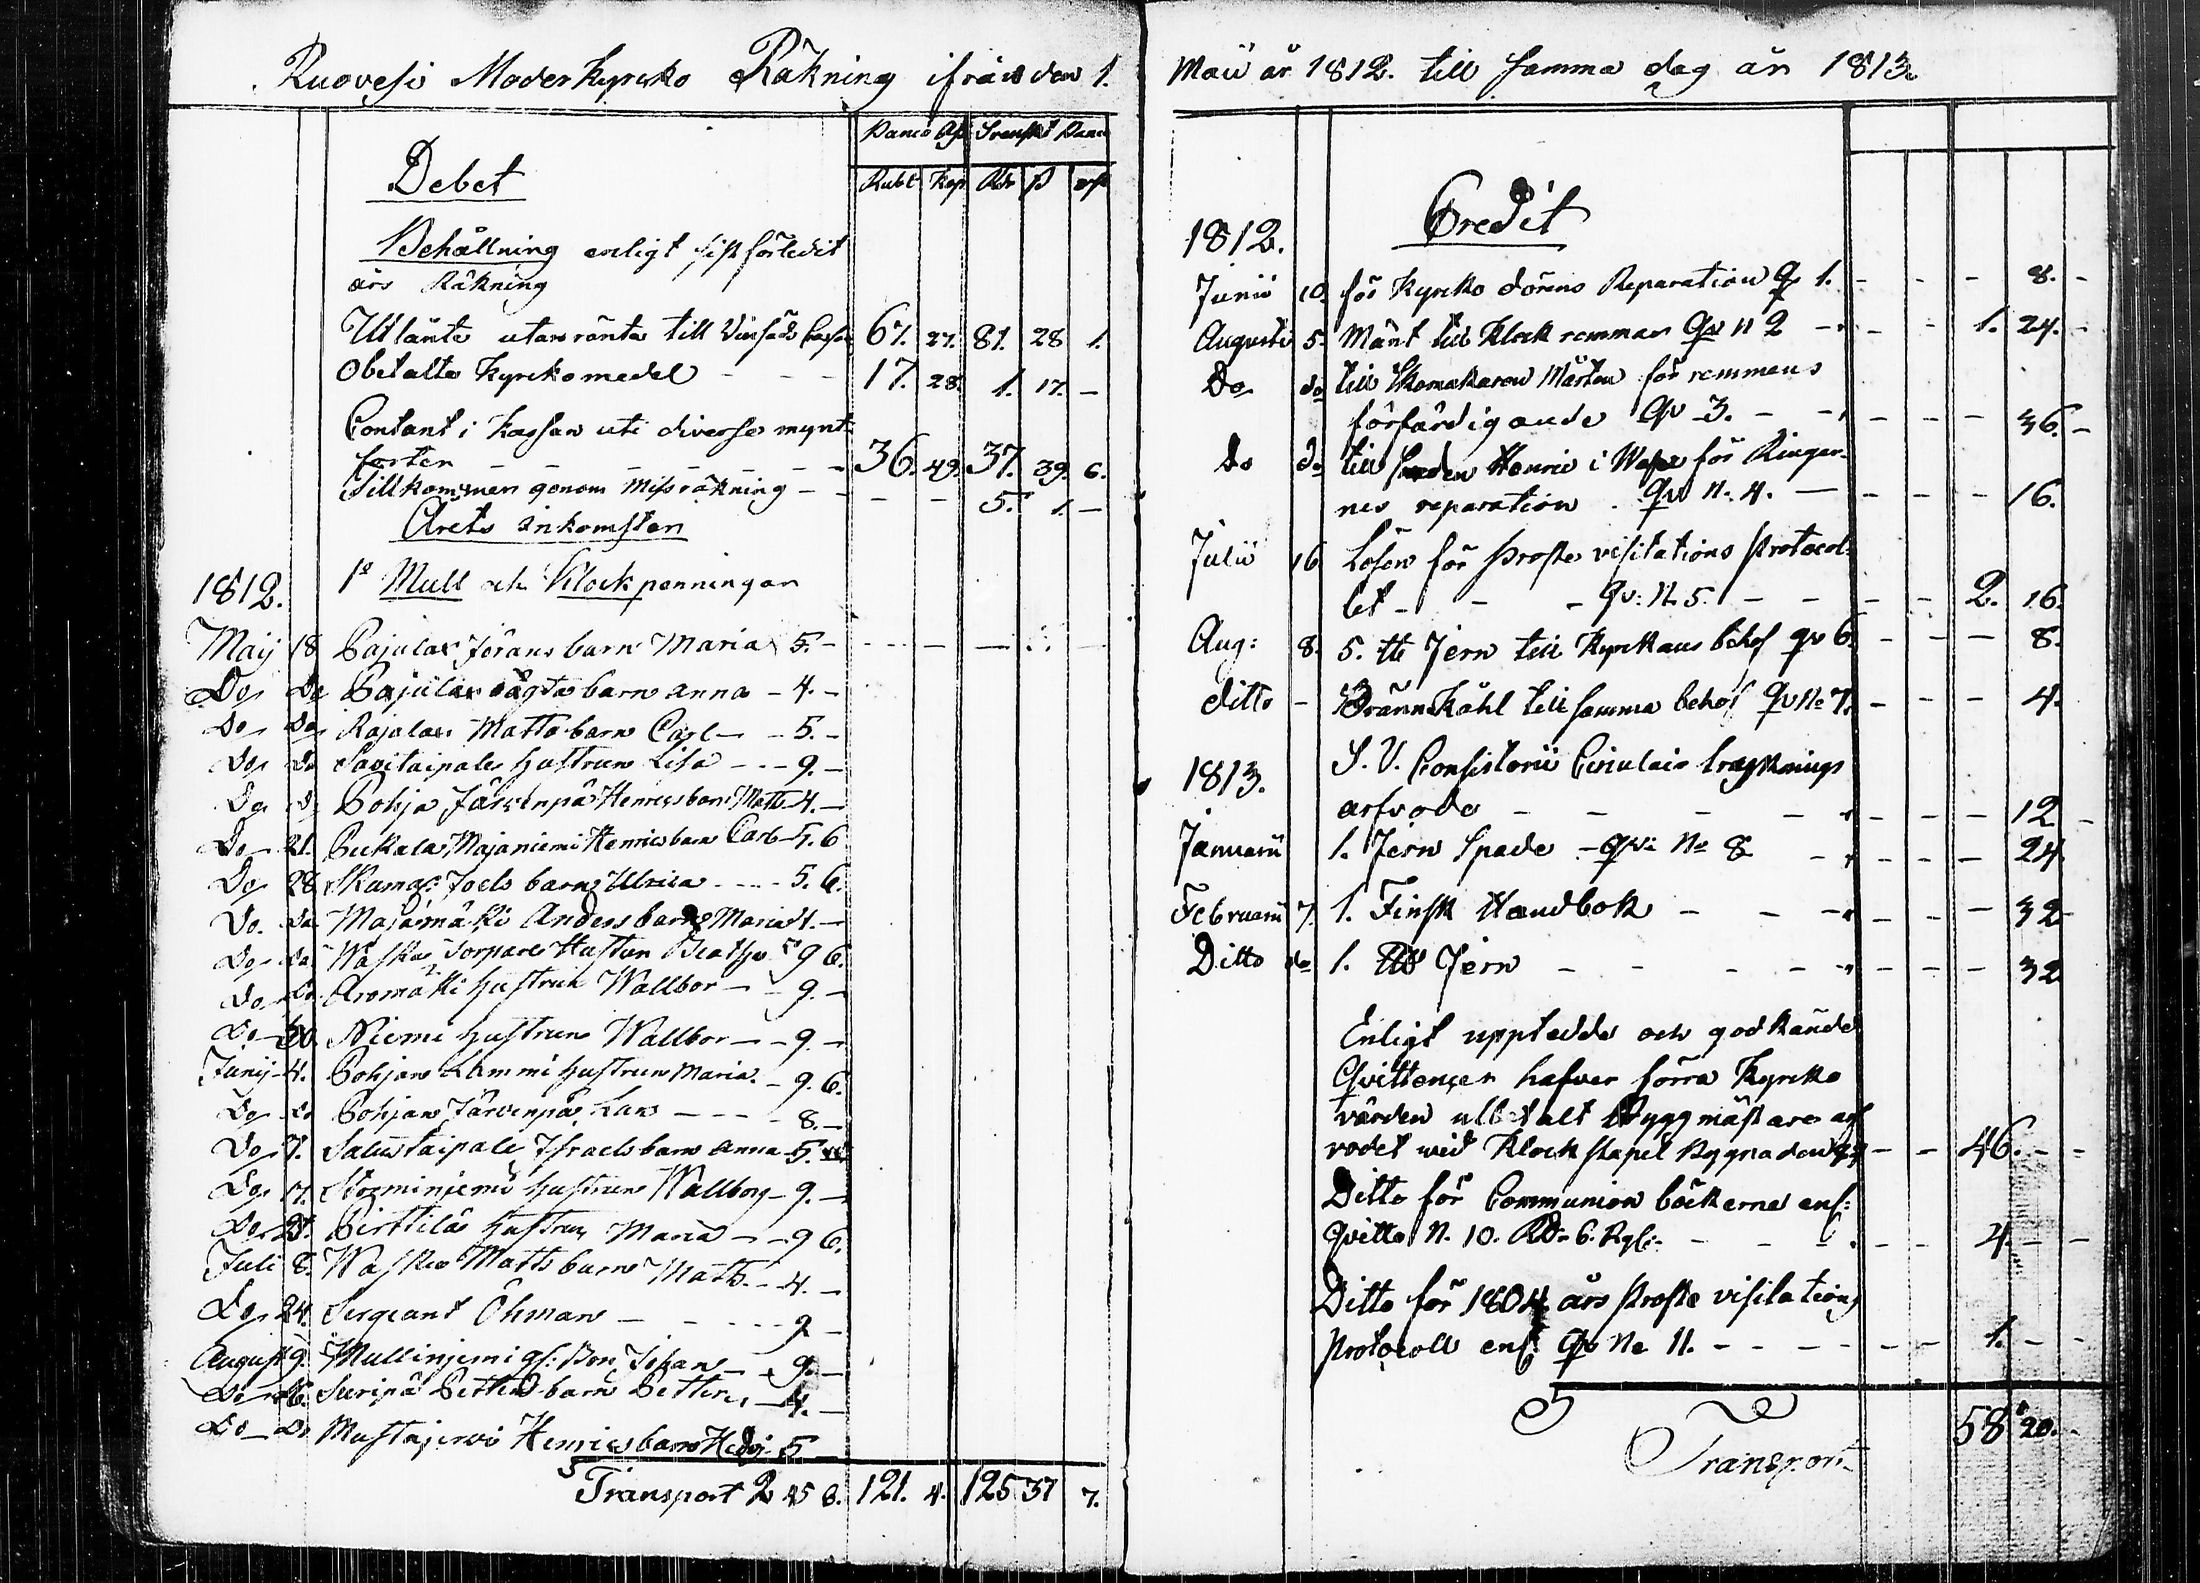 Ruovesi Moderkyrcko Räkning ifrån den 1.
Banco Ass Svenskt Banco
Debet
Rubl Kop Rdr ß rst
Behållning enligt sist förledit
års Räkning
Utlånte utan ränta till Cassa 67. 27. 81. 28 1.
Obetalte Kyrckomedel - - - 17. 28. 1. 17. -
Contant i Kassan uti diverse mynt
sorter - - - - - - - 36. 49. 37. 39. 6.
Tillkommer genom Missräkning - - - - 5. 1. -
Årets Inkomster
1812. 1o Mull och Klockpenningar
Maij 18 Pajulax Jörans barn Maria 5. -
Do Do Pajulax barn Anna - 4. -
Do Do Rajalax Matts barn Carl - - 5. -
Do Do Savitaipale hustrun Lisa - - - 9. -
Do Do Pohja Järvenpä Henrics barn Matts 4. -
Do 21. Pukala Majaniemi Henrics barn Carl 5. 6
Do 28 Skuma Joels barn Ulrica - - - - 5. 6.
Do. Do Majamäki Anders barn Maria 4. -
Do Do Waskas Torpare Hustrun Beatha 9 6.
Do Do Aromäki hustrun Wallbor - - 9. -
Do 30. Niemi hustrun Wallbor - - 9. -
Junij 4. Pohjan Lammi hustrun Maria. - 9. 6.
Do Do Pohjan Järvenpä - - - - 8. -
Do 7. Salustaipale Israels barn Anna 5.
Do 17. Storminiemi hustrun Wallborg - 9. -
Do 21. Pirttilä hustrun Maria - - 9 6.
Juli 8. Waskas Matts barn Matts. - 4. -
Do 24. Sergeant Öhman - - - - - 9 -
August 9. Mullinjemi Johan - 9. -
Do 16. Suripä Petters barn Petter, - 4. -
Do - Do Mustajervi Henrics barn Hedvi 5 -
Transport 2 45 8. 121. 4. 125 37 7.
Maii år 1812. till samma dag år 1813.
Credit
1812.
Junii 10. för Kyrcko dörens Reparation Qv 1. - - - 8. -
Augusti 5. till Klock remmar Qv N 2 - - - 1. 24. -
Do do till Skomakaren Mårten för remmens
förfärdigande Qv 3. - - - - - 36. -
Do do till Smeden Henric i för Ringar-
nes reparation. Qv N. 4. - - - - 16.
Julii 16 Lösen för Proste visitations Protocol-
let - - - Qv: N. 5. - - - - 2. 16.
Aug: 8. 5. tt Jern till Kyrkans behof Qv 6. - - - 8.
ditto - Bränn Kåhl till samma behof Qv No 7. - - - 4.
1813. S. V. Consistorii Circulair
arfvode - - - - - - - - 12 -
Januarii 1. Jern Spade - Qv: No 8 - - - - - 24.
Februarii 7. 1. Finsk Handbok - - - - - - 32
Ditto do 1. Jern - - - - - - - - 32
Enligt uppteedde och godkände
Qvittencer hafver förra Kyrcko
värden utbetalt Byggmästare arf
vodet wid Klock stapel Bygnaden 9 - - 46. - -
Ditto för Communion böckerne enl:
Qvitto N. 10. Rd 6. - - - - - - 4. - -
Ditto för 1804 års Proste visitations
Protocoll enl: Qv No 11. - - - - - - 1. - -
Transport 58 20. -